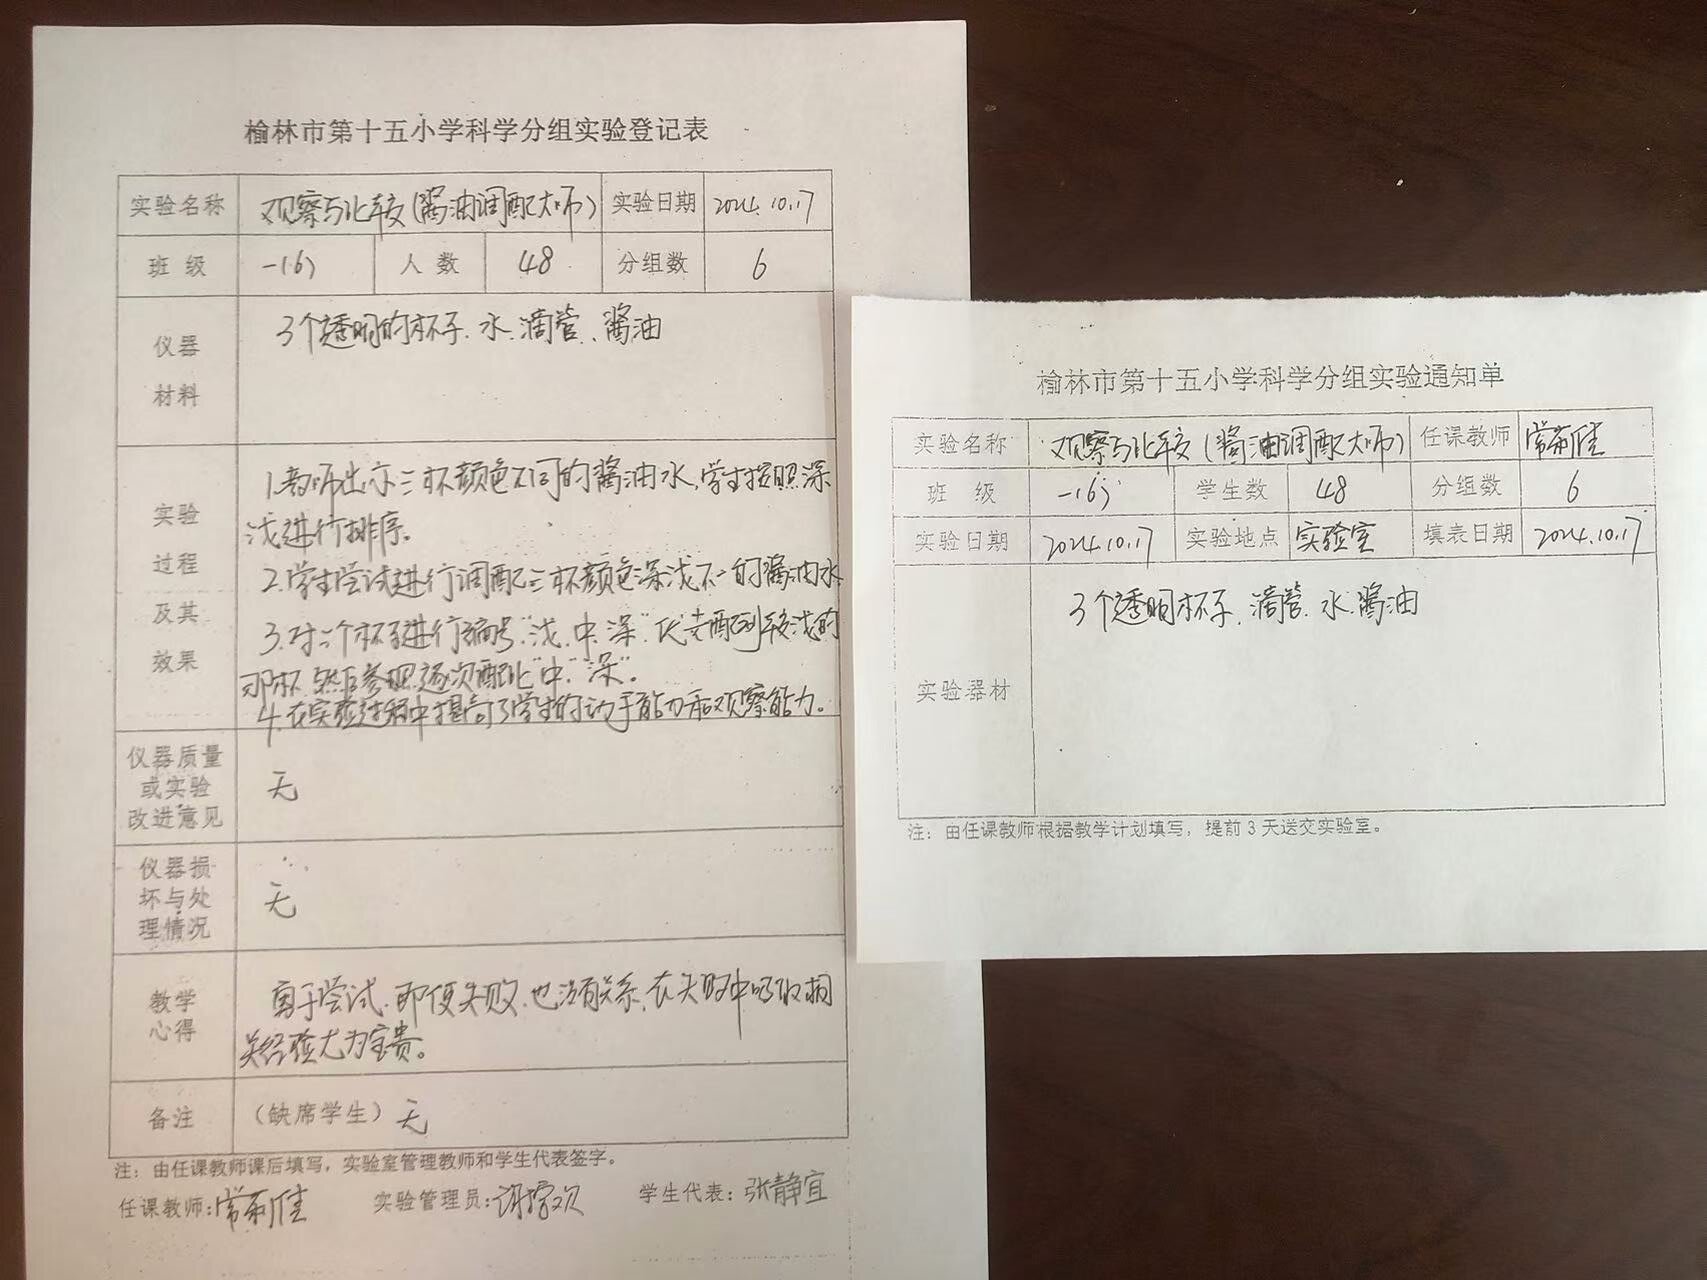 榆林市第十五小学科学分组实验登记表
实验名称 观察与比较(酱油调配大师) 实验日期 2024.10.17
班 级 一(6) 人 数 48 分组数 6
仪器 材料 3个透明的杯子、水、滴管、酱油
实验 过程 及其 效果
1.教师出示三杯颜色不同的酱油水,学生按照深
浅进行排序。
2.学生尝试进行调配三杯颜色深浅不一的酱油水
3.对三个杯子进行编号“浅、中、深”优先配到较浅的
那杯,然后参照逐次配比“中”“深”。
4.在实验过程中提高了学生的动手能力和观察能力。
仪器质量 或实验 改进意见 无
仪器损 坏与处 理情况 无
教学 心得 勇于尝试,即便失败,也没有关系,在失败中吸取相
关经验尤为宝贵。
备注 (缺席学生) 无
注:由任课教师课后填写,实验室管理教师和学生代表签字。
任课教师: 常 佳 实验管理员: 谢 欢 学生代表:张静宜
榆林市第十五小学科学分组实验通知单
实验名称 观察与比较(酱油调配大师) 任课教师 常 佳
班 级 一(6) 学生数 48 分组数 6
实验日期 2024.10.17 实验地点 实验室 填表日期 2024.10.17
实验器材 3个透明杯子、滴管、水、酱油
注:由任课教师根据教学计划填写,提前3天送交实验室。